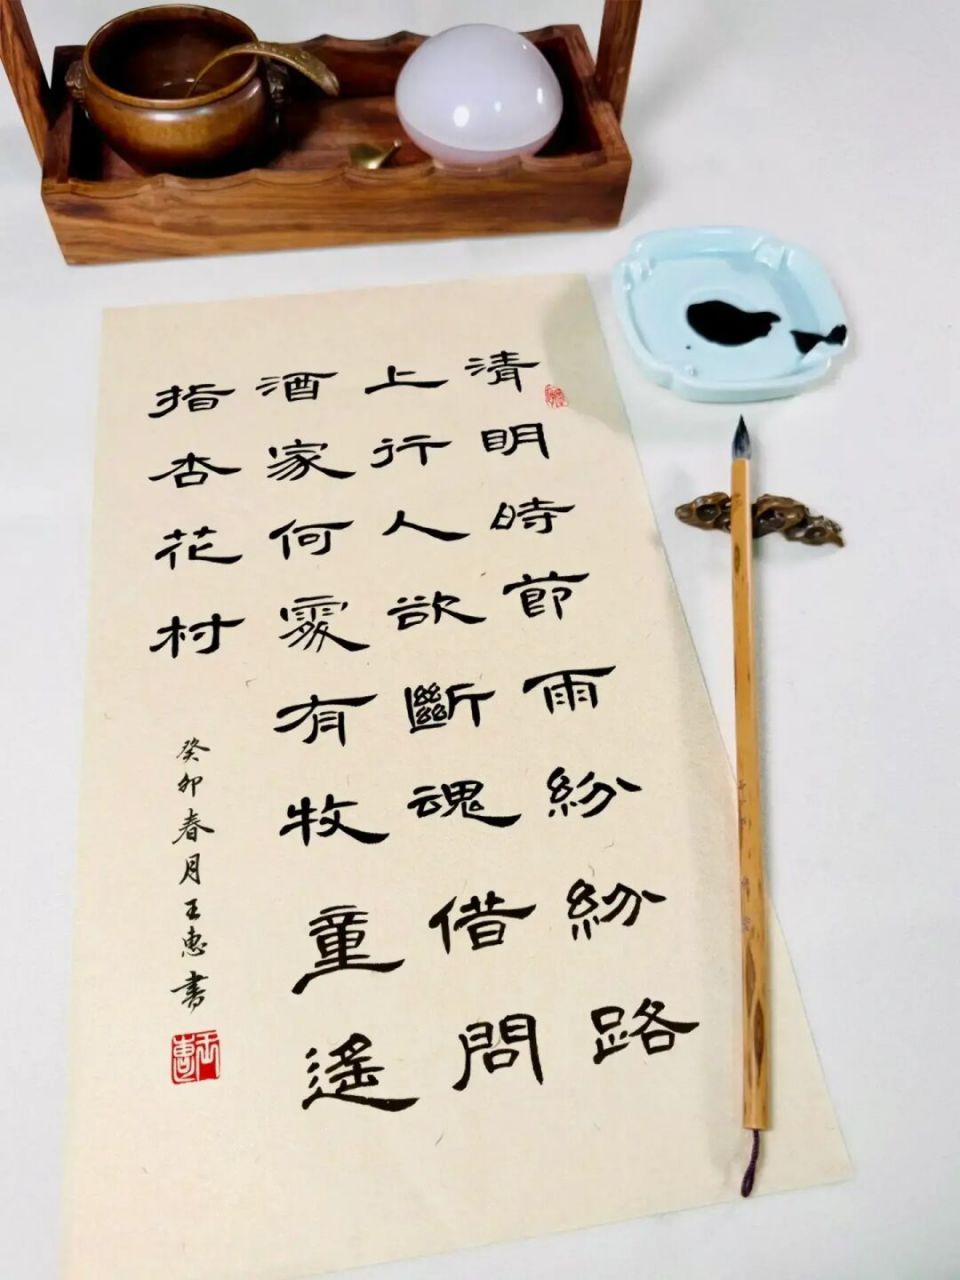 清明時節雨紛紛路
上行人欲斷魂借問
酒家何處有牧童遙
指杏花村
癸卯春月王惠書